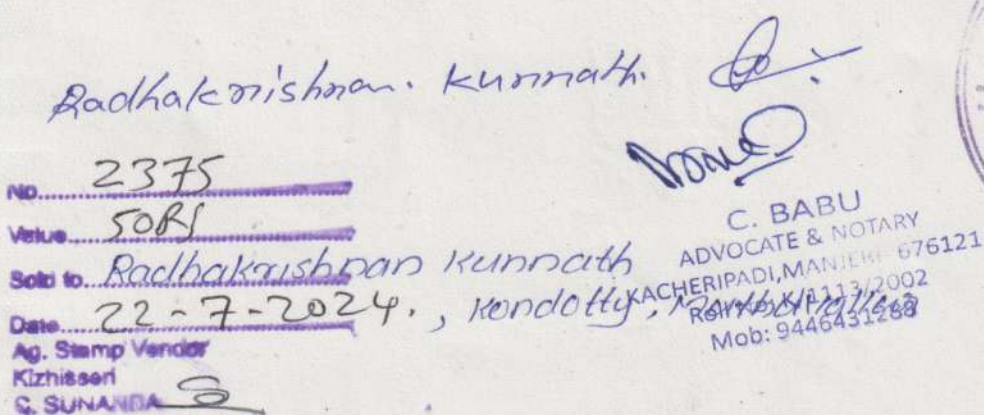 Radhakrishnan. Kunnath.
No. 2375
Value 50RS
Sold to Radhakrishnan Kunnath
Date 22-7-2024., Kondotty,
Ag. Stamp Vendor
Kizhisseri
C. SUNANDA
C. BABU
ADVOCATE & NOTARY
KACHERIPADI, MANJERI- 676121
Roll No.K/1113/2002
Mob: 9446431288